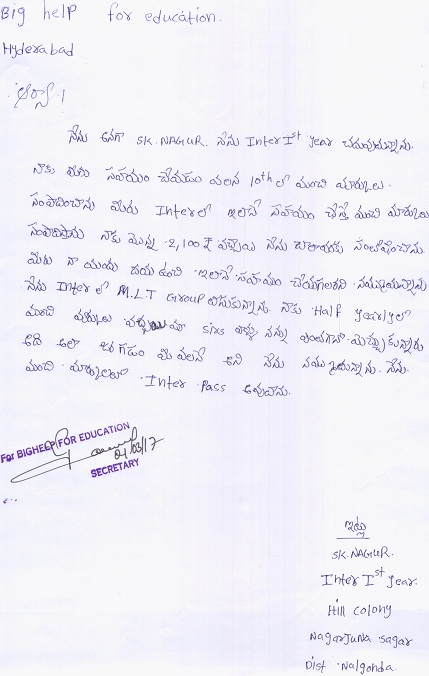 Big help for education.
Hyderabad
ఆర్యా!
నేను అనగా SK. NAGUR. నేను Inter Ist year చదువుచున్నాను.
నాకు మీరు సహయం చేయడం వలన 10th లో మంచి మార్కులు
సంపాదించాను మీరు Inter లో ఇలానే సహయం చేస్తే మంచి మార్కులు
నాకు మొన్న 2,100 ₹ వచ్చాయి నేను చాలా సంతోషించాను
మీరు నా యందు దయ ఉంచి ఇలానే సహయం
నేను Inter లో M.L.T Group తీసుకున్నాను. నాకు Half yearly లో
మంచి మార్కులు మా sirs నన్ను మెచ్చుకున్నారు
అది అలా జరగడం మీ వలనే అని నేను నమ్ముచున్నాను. నేను
మంచి మార్కులతో Inter Pass అవుతాను.
For BIGHELP FOR EDUCATION
04/03/17
SECRETARY
ఇట్లు
SK. NAGUR.
Inter Ist year.
Hill colony
Nagarjuna sagar
Dist Nalgonda